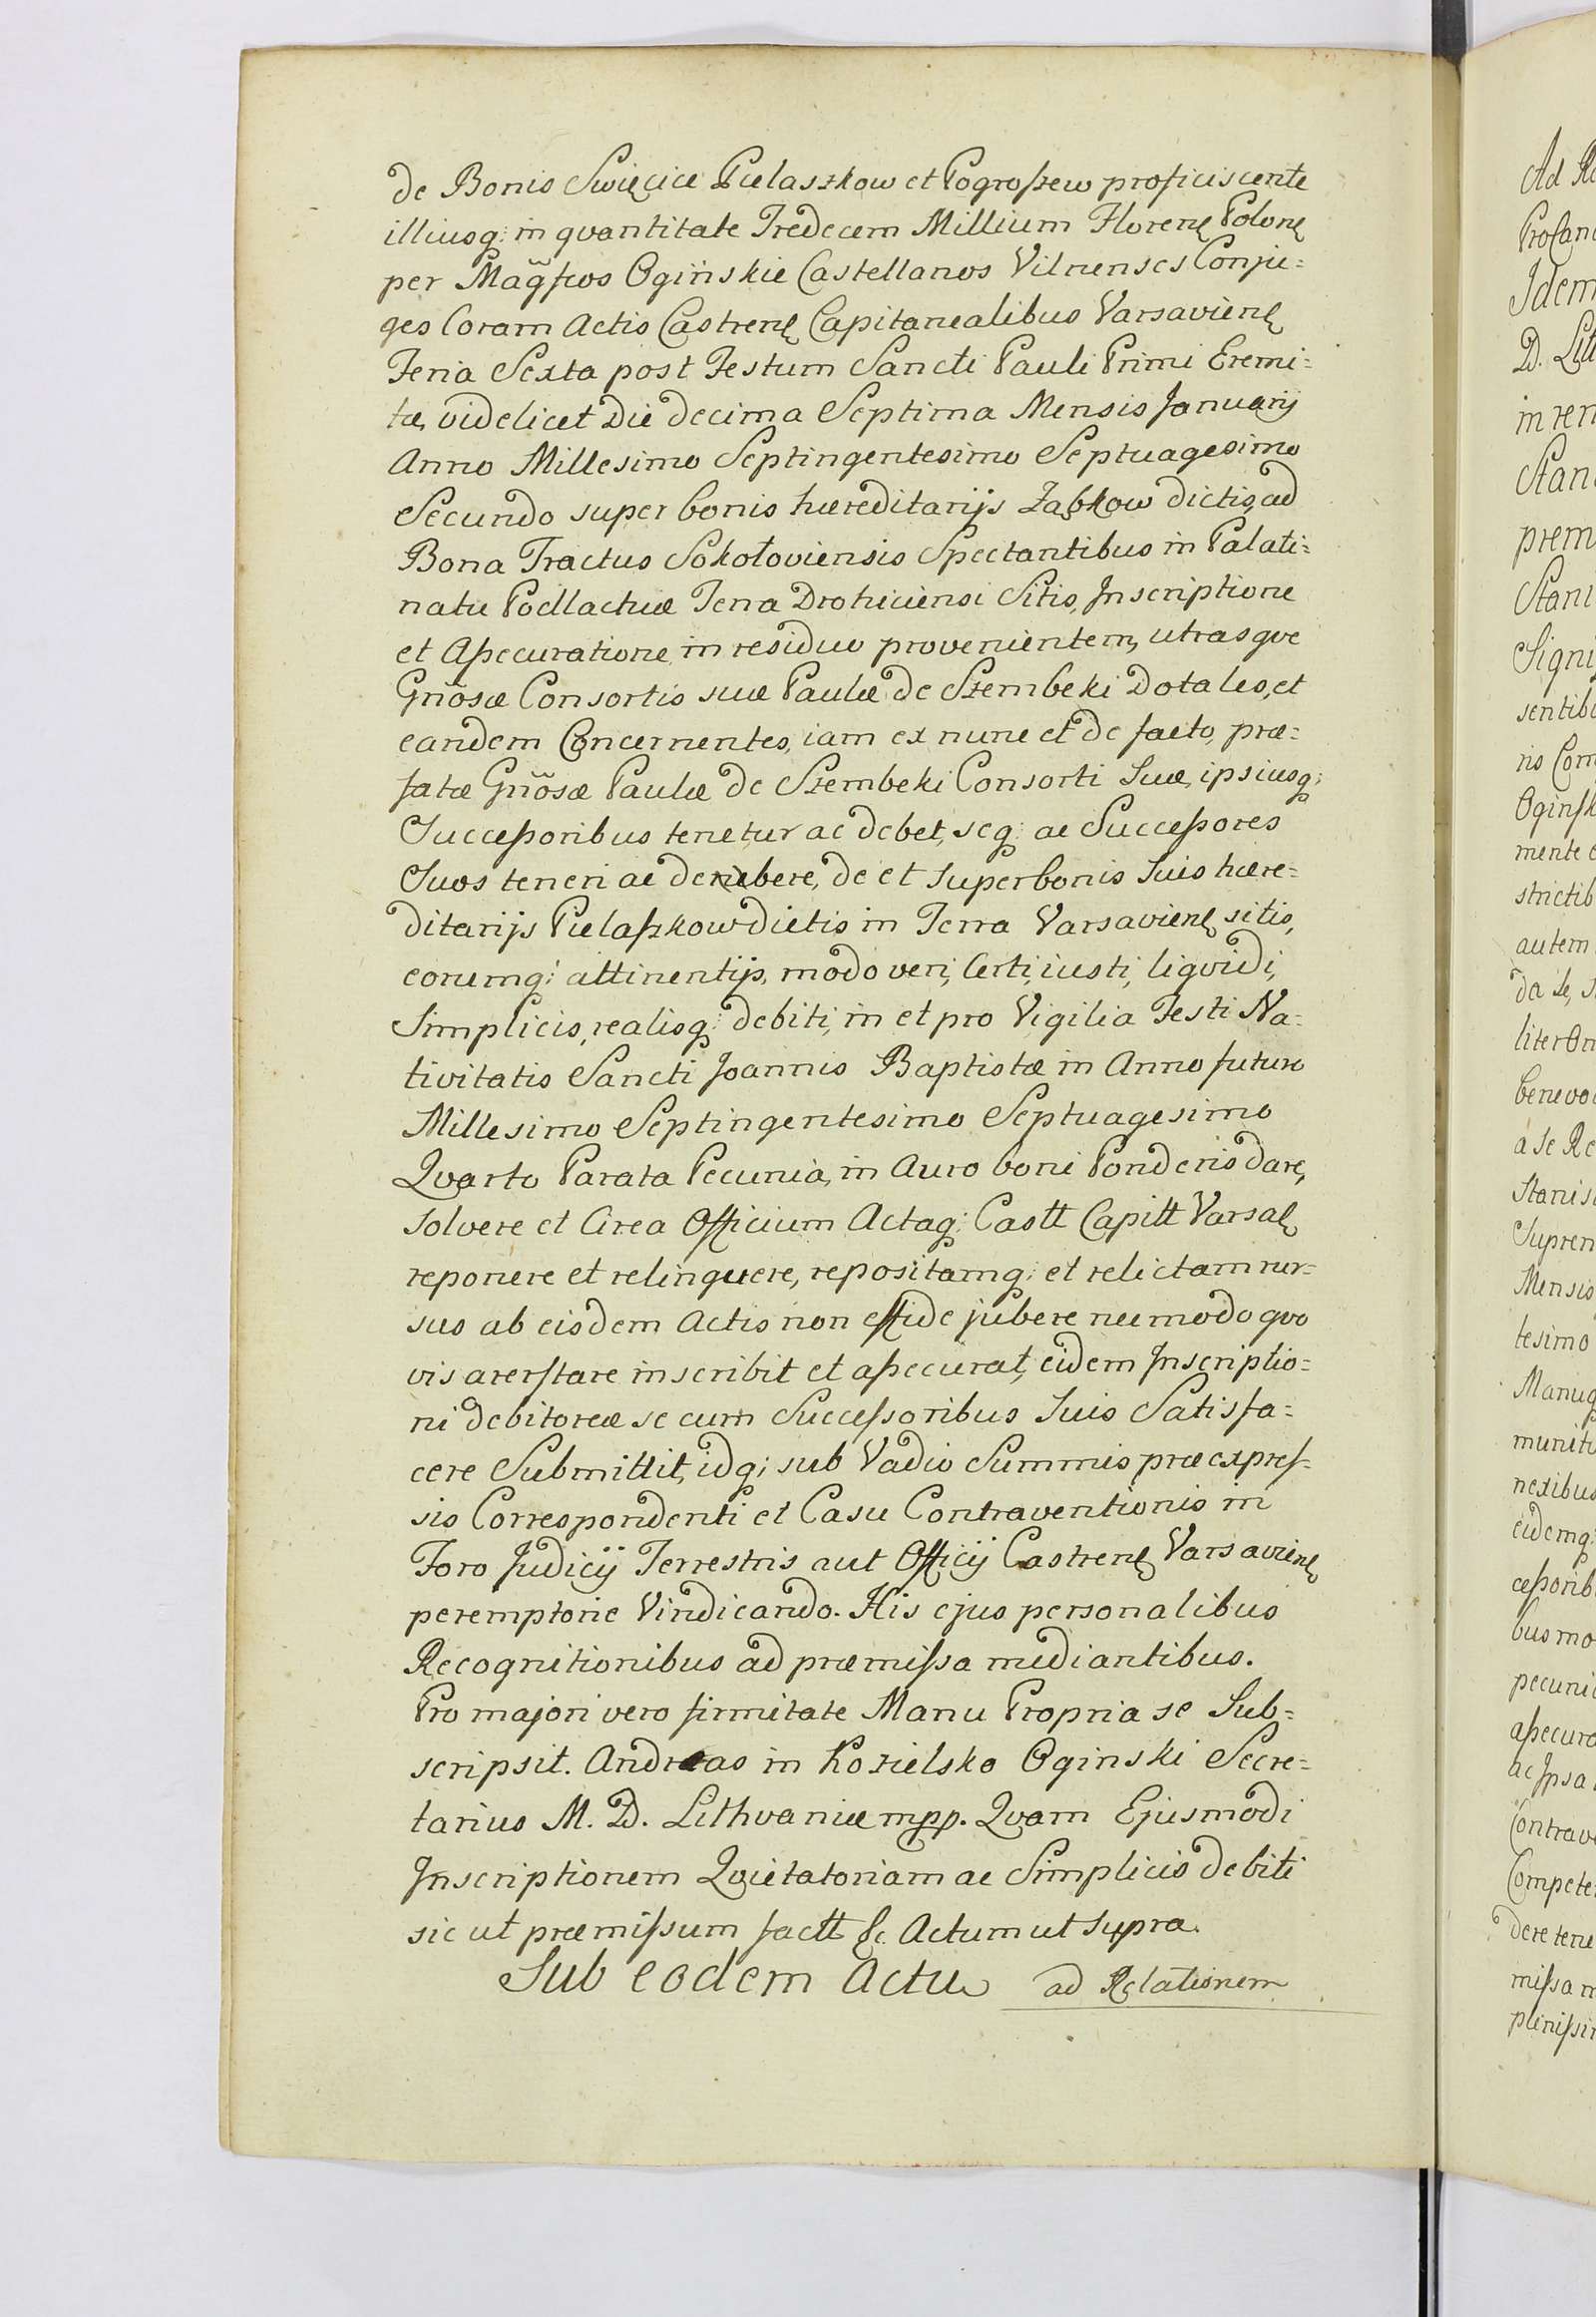 de Bonis Swięcice Pielaszkow et Pogroszew proficiscente
illiusq; in qvantitate Tredecem Millium Floren Polon
per Magfcos Oginskie Castellanos Vilnenses Conju=
ges Coram Actis Castren Capitanealibus Varsavien
Feria Sexta post Festum Sancti Pauli Primi Eremi=
tæ, videlicet Die decima Septima Mensis Januarij
Anno Millesimo Septingentesimo Septuagesimo
Secundo super bonis hæreditarijs Ząbkow dictis, ad
Bona Tractus Sokołoviensis Spectantibus in Palati=
natu Podlachiæ Terra Drohiciensi Sitis, Inscriptione
et Aßecuratione in residuo provenientem, utrasqve
Gnosæ Consortis suæ Paulæ de Szembeki Dotales, et
eandem Concernentes, iam ex nunc et de facto, præ=
fatæ Gnosæ Paulæ de Szembeki Consorti Suæ, ipsiusq;
Succeßoribus tenetur ac debet, seq; ac Succeßores
Suos teneri ac debere, de et super bonis Suis hære=
ditarijs Pielaßzkow dictis in Terra Varsavien sitis,
eorumq; attinentijs, modo veri, Certi, iusti, liqvidi,
Simplicis, realisq; debiti, in et pro Vigilia Festi Na=
tivitatis Sancti Joannis Baptistæ in Anno futuro
Millesimo Septingentesimo Septuagesimo
Qvarto Parata Pecunia, in Auro boni Ponderis dare,
Solvere et Circa Officium Actaq; Castt Capitt Varsal
reponere et relinquere, repositamq; et relictam rur=
sus ab eisdem Actis non jubere nec modo qvo
vis arerstare inscribit et aßecurat, eidem Inscriptio=
ni debitoreæ se cum Succeſsoribus Suis Satisfa=
cere Submittit, idq; sub Vadio Summis præexpreſ=
sis Correspondenti et Casu Contraventionis in
Foro Judicij Terrestris aut Officij Castren Varsavien
peremptorie Vindicando. His ejus personalibus
Recognitionibus ad præmiſsa mediantibus.
Pro majori vero firmitate Manu Propria se Sub=
scripsit. Andreas in Kozielsko Oginski Secre=
tarius M. D. Lithvaniæ mpp. Qvam Ejusmodi
Inscriptionem Qvietatoriam ac Simplicis debiti
sic ut præmiſsum factt &c. Actum ut supra.
Sub eodem Actu ad Relationem